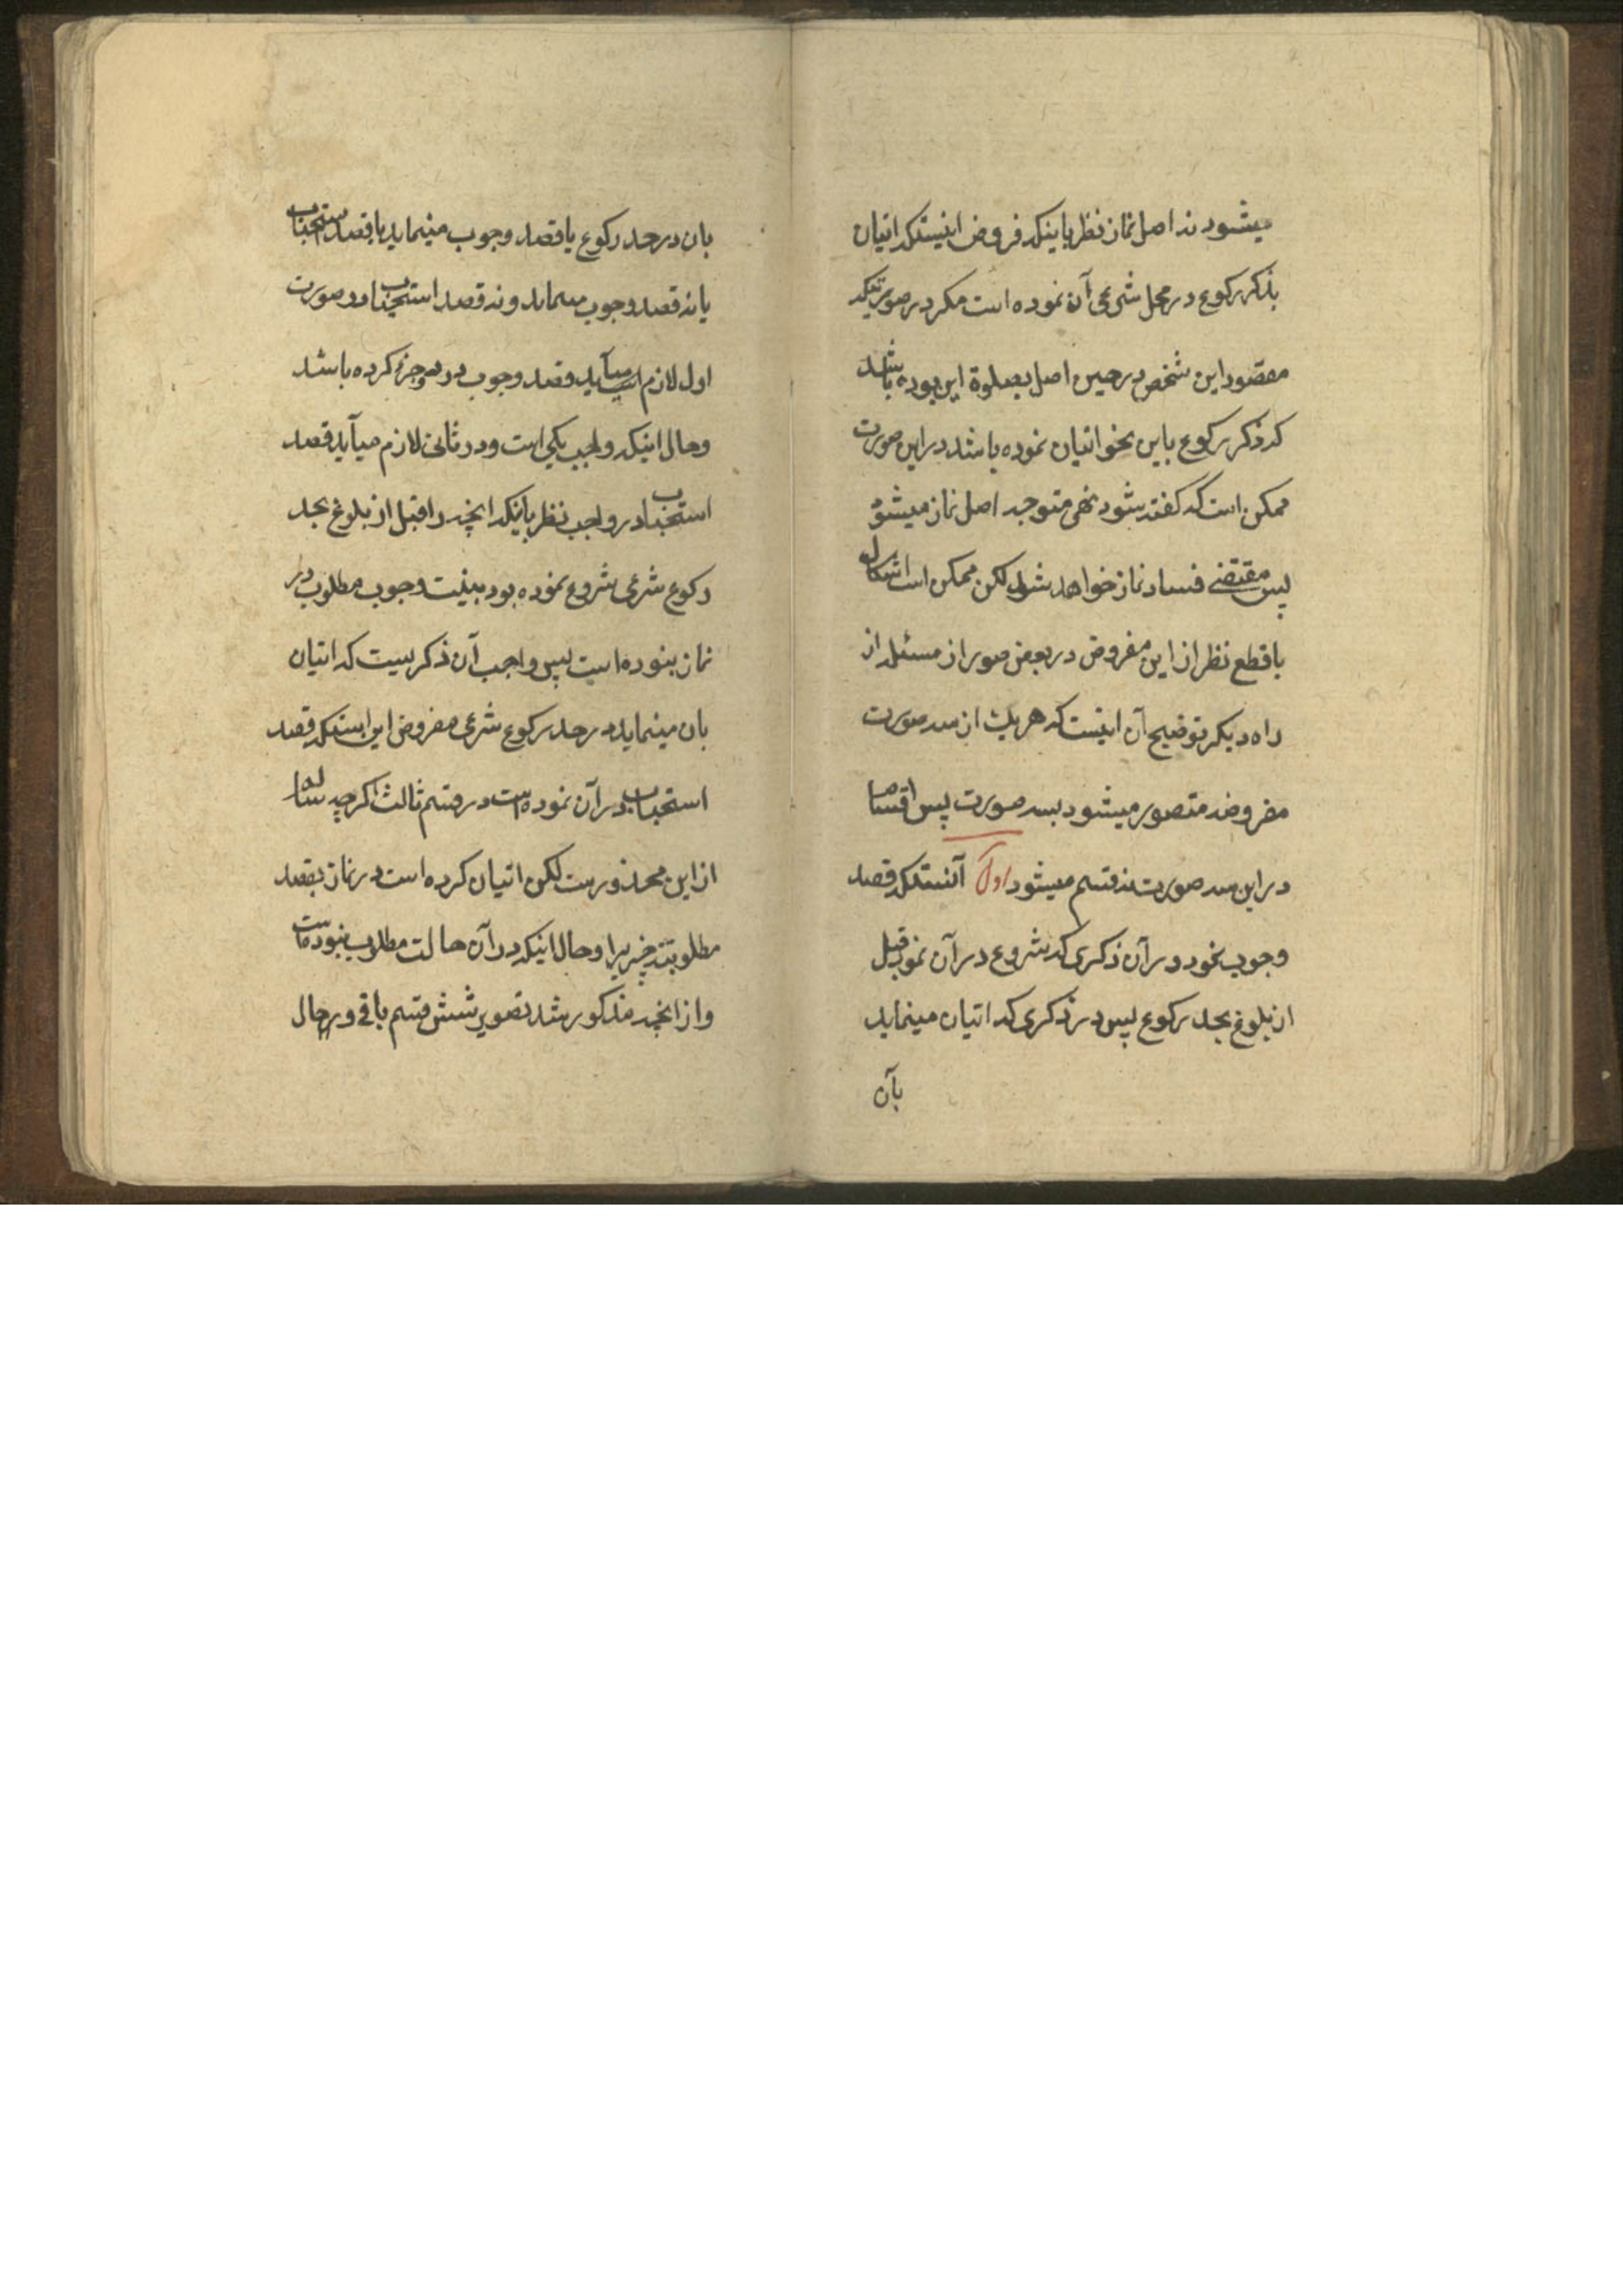 میشود نه اصل نماز نظر باینکه فروض اینستکه اتیان
بذکر رکوع در محل شرعی آن نموده است مکر در صورتیکه
مقصود این شخص در حین اصل بصلوة این بوده باشد
که ذکر رکوع باین نحو اتیان نموده باشد در این صورت
ممکن است که کفته شود نهی متوجه اصل نماز میشود
پس مقتضی فساد نماز خواهد شد لکن ممکن است اشکال
با قطع نظر از این مفروض در بعض صور از مسئله از
راه دیکر توضیح آن اینست که هر یک از سه صورت
مفروضه متصور میشود بسه صورت پس اقسام
در این سه صورت نه قسم میشود اول آنستکه قصد
وجوب نمود در آن ذکری که شروع در آن نمود قبل
از بلوغ بحد رکوع پس در ذکری که اتیان مینماید
بآن
بان در حد رکوع یا قصد وجوب مینماید یا قصد استحباب
یا نه قصد وجوب مینماید و نه قصد استحباب در صورت
اول لازم میآید قصد وجوب در دو جزء کرده باشد
وحال اینکه واجب یکی است و در ثانی لازم میآید قصد
استحباب در واجب نظر باینکه انچه را قبل از بلوغ بحد
رکوع شرعی شروع نموده بود بنیت وجوب مطلوب در
نماز نبوده است پس واجب آن ذکریست که اتیان
بان مینماید در حد رکوع شرعی مفروض این استکه قصد
استحباب در آن نموده است در قسم ثالث اکرچه سالم
از این محذور است لکن اتیان کرده است در نماز بقصد
مطلوبیت چیزیرا وحال اینکه در آن حالت مطلوب نبوده است
و از انچه مذکور شد تصویر شش قسم باقی در حال